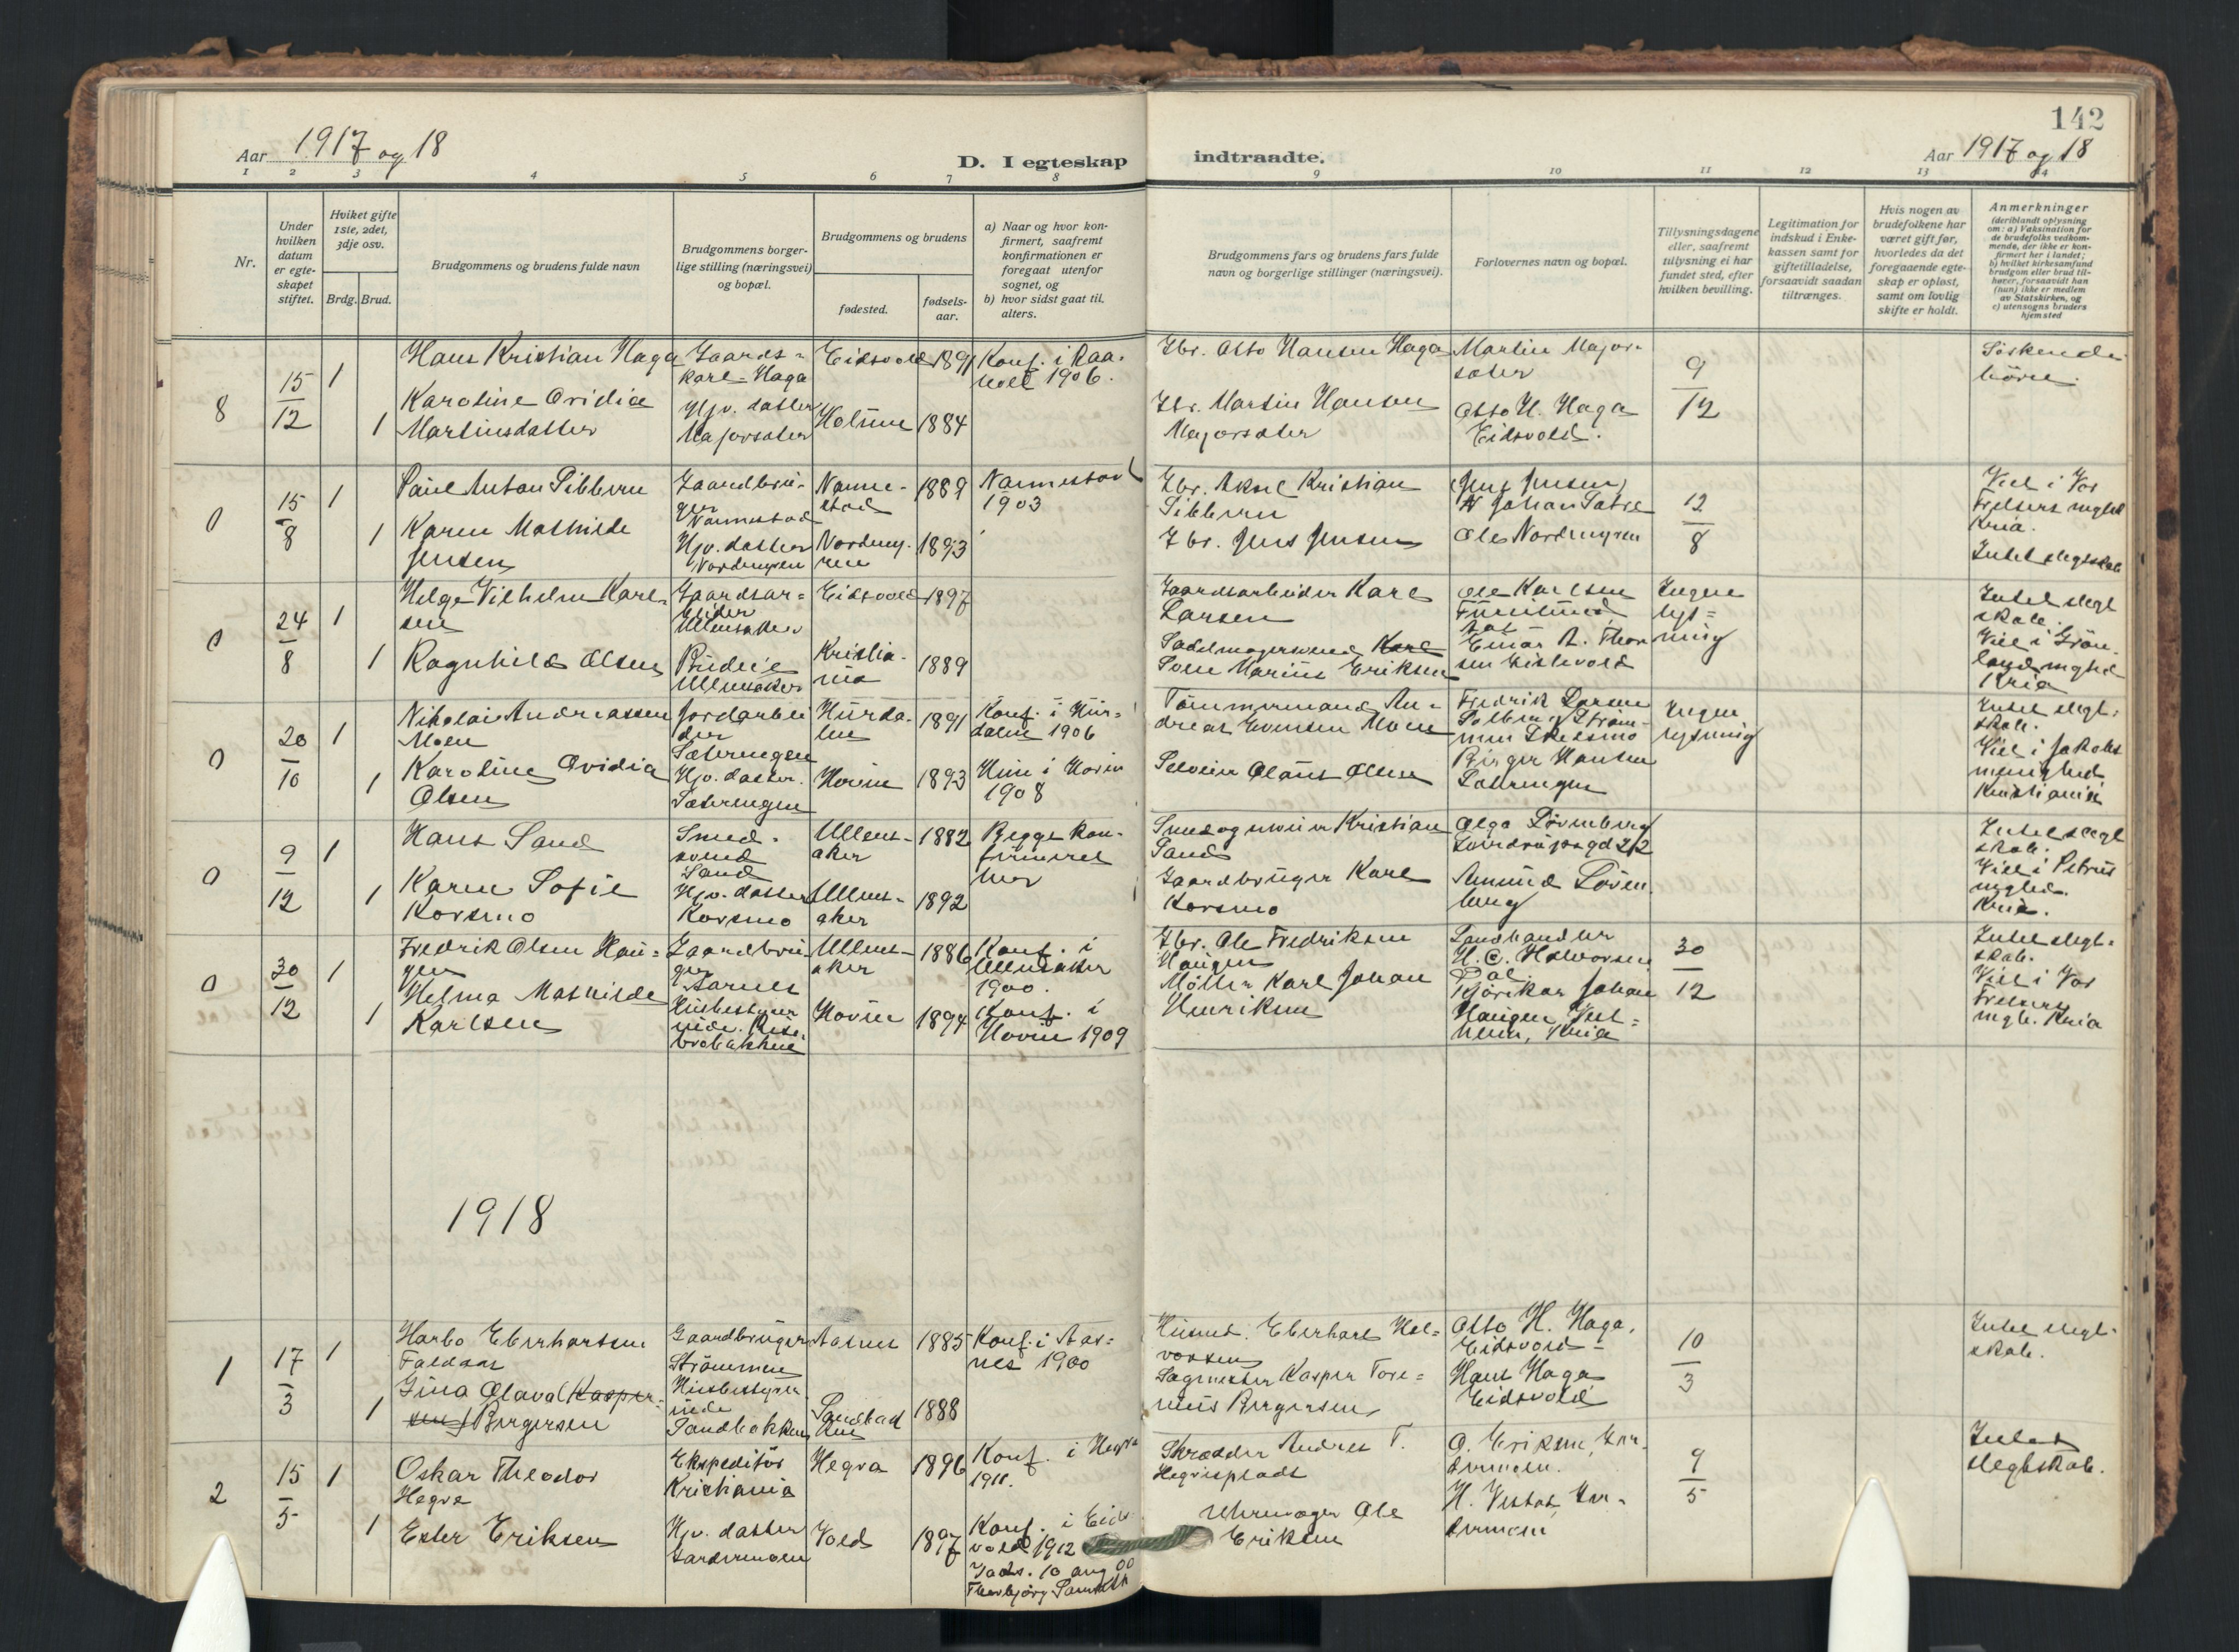 142
Aar 1917 og 18
D. I egteskap
indtraadte.
Aar 1917 og 18
1 2 3 4 5 6 7 8 9 10 11 12 13 14
Nr.
Under
hvilken
datum
er egte-
skapet
stiftet.
Hviket gifte
1ste, 2det,
3dje osv.
Brdg. Brud.
Brudgommens og brudens fulde navn
Brudgommens borger-
lige stilling (næringsvei)
og bopæl.
Brudgommens og brudens
fødested.
fødsels-
aar.
a) Naar og hvor kon-
firmert, saafremt
konfirmationen er
foregaat utenfor
sognet, og
b) hvor sidst gaat til.
alters.
Brudgommens fars og brudens fars fulde
navn og borgerlige stillinger (næringsvei).
Forlovernes navn og bopæl.
Tillysningsdagene
eller, saafremt
tillysning ei har
fundet sted, efter
hvilken bevilling.
Legitimation for
indskud i Enke-
kassen samt for
giftetilladelse,
forsaavidt saadan
tiltrænges.
Hvis nogen av
brudefolkene har
været gift før,
hvorledes da det
foregaaende egte-
skap er opløst,
samt om lovlig
skifte er holdt.
Anmerkninger
(deriblandt oplysning
om: a) Vaksination for
de brudefolks vedkom-
mende, der ikke er kon-
firmert her i landet;
b) hvilket kirkesamfund
brudgom eller brud til-
hører, forsaavidt han
(hun) ikke er medlem
av Statskirken, og
c) utensogns bruders
hjemsted
8
15
12
1
Hans Kristian Haga
Gaards-
karl - Haga
Eidsvold
1891
Konf. i Raa-
holt 1906.
Gbr. Otto Hansen Haga
Martin Major-
sæter
9
12
Søskende-
børn.
1
Karoline Ovidia
Martinsdatter
Hjv. datter
Majorsæter
Holum
1884
Gbr. Martin Hansen
Majorsæter
Otto H. Haga
Eidsvold.
0
15
8
1
Paul Anton Sibbern
Gaardbru-
ger
Nannestad
Nanne-
stad
1889
Nannestad
1903
Gbr. Aksel Kristian
Sibbern
Jens Jensen
Johan Sætre
12
8
Viet i Vor
Frelsers mghed
Kria.
Intet slegtskab
1
Karen Mathilde
Jensen
Hjv. datter
Nordmyren
Nordmy-
ren
1893
Gbr. Jens Jensen
Ole Nordmyren
0
24
8
1
Helge Vilhelm Karl-
sen
Gaardsar-
beider
Ullensaker
Eidsvold
1897
Gaardsarbeider Karl
Larsen
Ole Karlsen
Ingen
lys-
ning
Intet slegt
skab.
Viet i Grøn-
land mghed
Kria
1
Ragnhild Olsen
Budeie
Ullensaker
Kristia-
nia
1889
Sadelmagersvend Karl
Sven Marius Eriksen
Einar A. Thor
sen Eidsvold
0
20
10
1
Nikolai Andreassen
Moen
Jordarbei
der
Sætrengen
Hurda-
len
1891
Konf. i Hur-
dalen 1906
Tømmermand An-
dreas Evensen Moen
Fredrik Larsen
Solberg Strøm-
men Skedsmo
Ingen
lysning
Intet slegt-
skab.
Viet i Jakobs
menighed
Kristiania
1
Karoline Ovidia
Olsen
Hjv. datter.
Sætrengen
Hovin
1893
Hun i Hovin
1908
Selveier Olaus Olsen
Birger Hansen
Sætrengen
0
9
12
1
Hans Sand
Smed-
svend
Sand
Ullens-
aker
1882
Begge kon-
firmeret
her
Smed og urmaker Kristian
Sand
Olga Løvenberg
Intet slegt
skab.
Viet i Petrus
mghed.
Kria.
1
Karen Sofie
Korsmo
Hjv. datter
Korsmo
Ullens-
aker
1892
Gaardbruger Karl
Korsmo
Amund Løven-
berg
0
30
12
1
Fredrik Olsen Hau-
gen
Gaardbru-
ger
Aarnes
Ullens-
aker
1886
Konf. i
Ullensaker
1900.
Gbr. Ole Fredriksen
Haugen
Landhandler
H. C. Halvorsen
Dal
30
12
Intet slegt-
skab.
Viet i Vor
Frelsers
mgh. Kria
1
Helma Mathilde
Karlsen
Husbestyrer
inde.
Hovin
1894
Konf. i
Hovin 1909
Møller Karl Johan
Henriksen
Johan
Haugen
Kria
1918
1
17
3
1
Harbo Eberhartsen
Faldaas
Gaardbruger
Strømmen
Aasnes
1885
Konf. i Aas-
nes 1900
Husmd. Eberhart Hal-
vorsen
Otto H. Haga.
Eidsvold -
10
3
Intet slegt-
skab.
1
Gina Olava (Kasper-
sen) Bergersen
Husbestyrer
inde
Sandbakken
Sandbak
ken
1888
Sagmester Kasper Tore-
nius Bergersen
Hans Haga
Eidsvold
2
15
5
1
Oskar Theodor
Hegre
Ekspeditør
Kristiania
Hegra
1896
Konf. i Hegra
1911.
Skrædder Andres T.
Hegvisplads
O. Eriksen, Gar-
dermoen.
9
5
Intet
slegtskab.
1
Ester Eriksen
Hjv. datter
Gardermoen
Vold
1897
Konf. i Eids
vold 1912
10 aug
Thorbjørg
Uhrmager Ole
Eriksen
H. Vestad, Gar-
dermoen